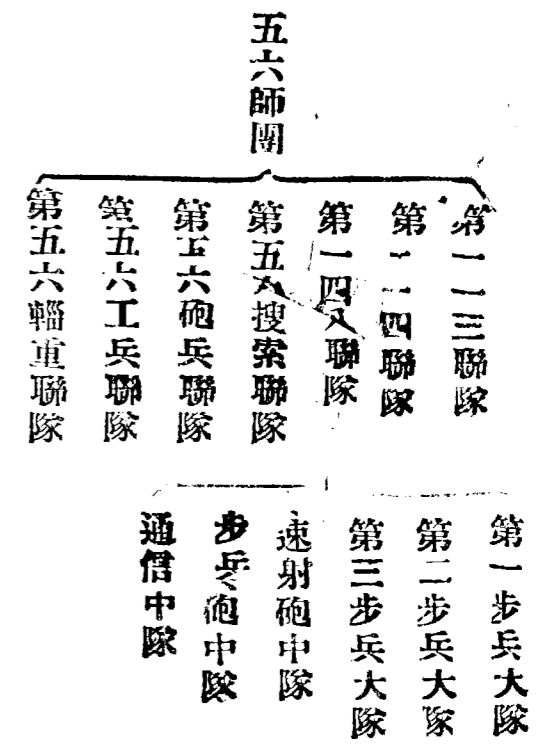 五六師團
第一一三聯隊
第一一四聯隊
第一四八聯隊
第五六搜索聯隊
第五六砲兵聯隊
第五六工兵聯隊
第五六輜重聯隊
第一步兵大隊
第二步兵大隊
第三步兵大隊
速射砲中隊
步兵砲中隊
通信中隊